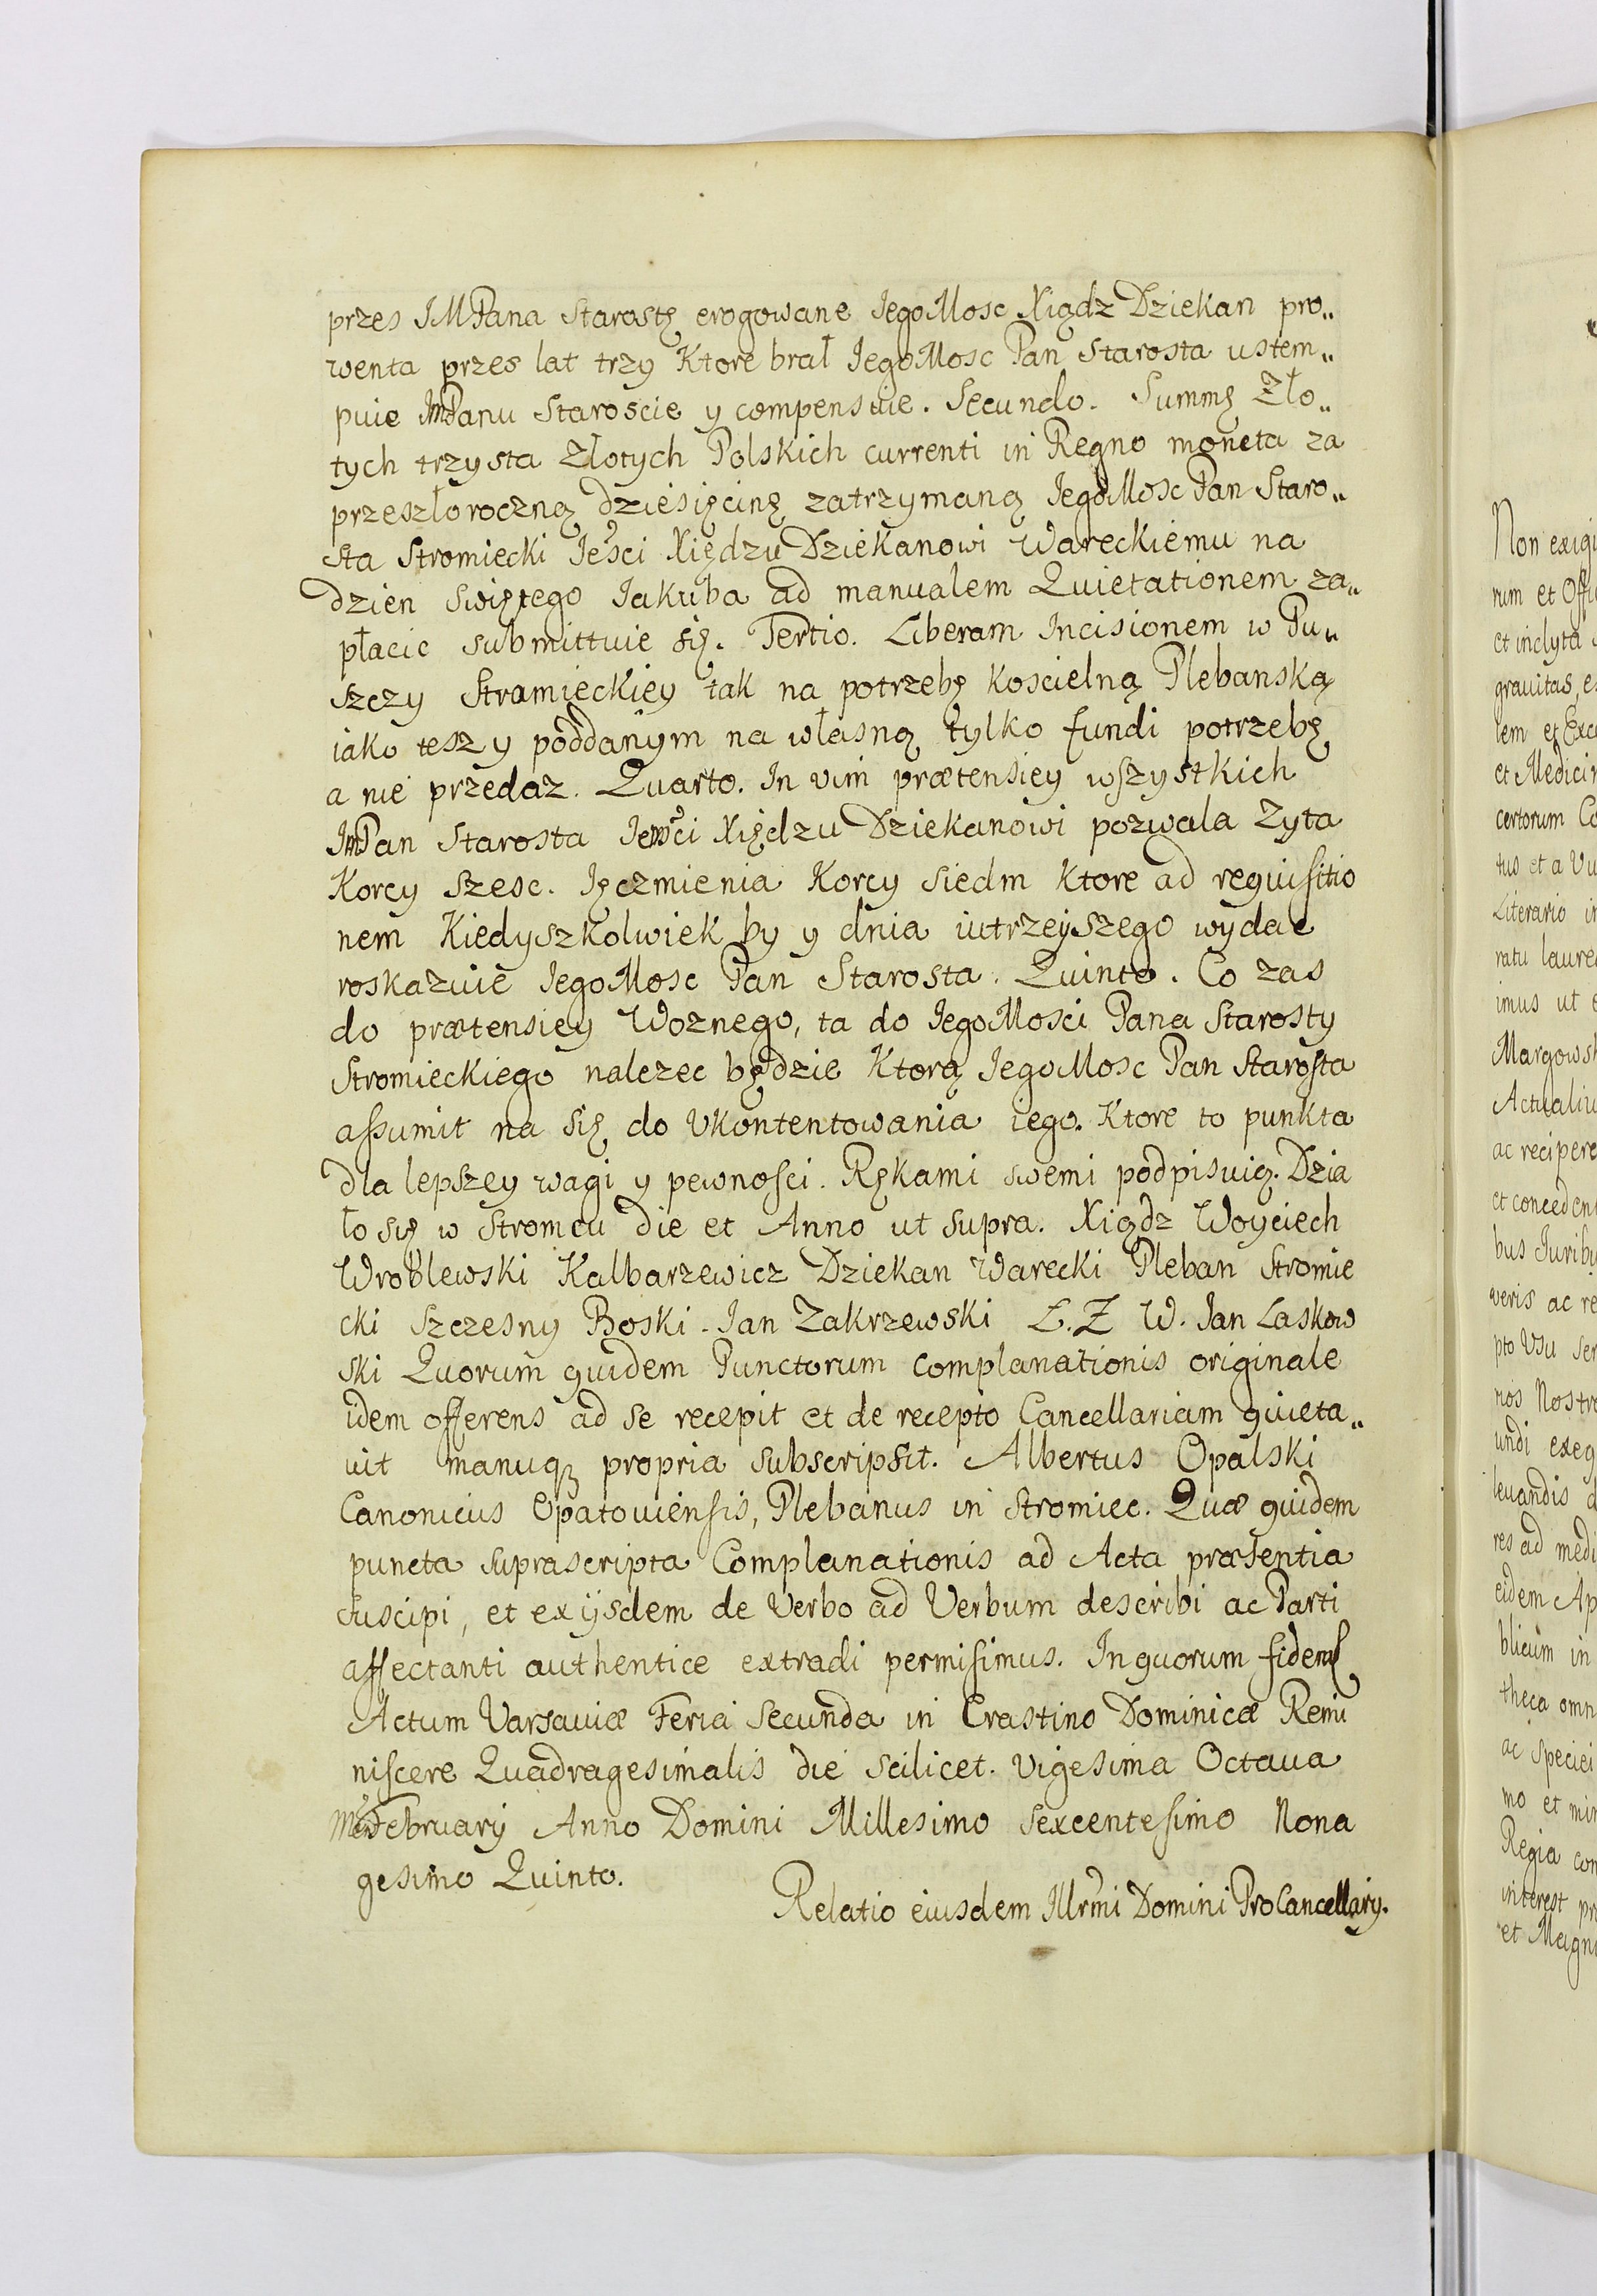 przes JMPana Starostę erogowane JegoMosc Xiądz Dziekan pro„
wenta przes lat trzy Ktore brał JegoMosc Pan Starosta ustem„
puie JmPanu Staroscie y compensuie. Secundo. Summę Zło„
tych trzysta Złotych Polskich currenti in Regno moneta za
przeszłoroczną dziesięcinę zatrzymaną JegoMosc Pan Staro„
sta Stromiecki Jeści Xiędzu Dziekanowi Wareckiemu na
dzien swiętego Jakuba ad manualem Quietationem za„
płacic submittuie się. Tertio. Liberam Incisionem w Pu„
szczy Stramieckiey tak na potrzebę Koscielną Plebanską
iako tesz y poddanym na własną tylko fundi potrzebę
a nie przedaz. Quarto. In vim prætensiey wszystkich
JmPan Starosta Jemści Xiędzu Dziekanowi pozwala Zyta
Korcy szesc. Jęczmienia Korcy siedm Ktore ad requisitio
nem Kiedyszkolwiek by y dnia iutrzeyszego wydac
roskazuie JegoMosc Pan Starosta. Quinto. Co zas
do prætensiey Woznego, ta do JegoMosci Pana Starosty
Stromieckiego nalezec będzie Ktorą JegoMosc Pan Starosta
assumit na się do Vkontentowania iego. Ktore to punkta
dla lepszey wagi y pewnosci. Rękami swemi podpisuią. Dzia
ło się w Stromcu die et Anno ut supra. Xiądz Woyciech
Wroblewski Kalbarzewicz Dziekan Warecki Pleban Stromie
cki Szczesny Boski. Jan Zakrzewski Ł. Z W. Jan Laskow
ski Quorum quidem Punctorum complanationis originale
idem offerens ad se recepit et de recepto Cancellariam quieta„
uit manuqꝫ propria subscripsit. Albertus Opalski
Canonicus Opatouiensis, Plebanus in Stromiec. Quæ quidem
puncta suprascripta Complanationis ad Acta præsentia
suscipi, et ex ijsdem de Verbo ad Verbum describi ac Parti
affectanti authentice extradi permisimus. In quorum fidem
Actum Varsauiæ Feria Secunda in Crastino Dominicæ Remi
niscere Quadragesimalis die scilicet. Vigesima Octaua
Februarij Anno Domini Millesimo Sexcentesimo Nona
gesimo Quinto.
Relatio eiusdem Illrmi Domini ProCancellarij.
Non exigi
rum et Offi
et inclyta
grauitas, e
lem et Exce
et Medicin
certorum Co
tus et a Vu
Literario in
ratu laure
imus ut e
Margows
Actualiu
ac recipere
et conceden
bus Juribu
veris ac re
pto Vsu ser
nos Nostro
undi exeq
leuandis d
res ad medi
eidem Ap
blicum in
theca omn
ac Speciei
mo et min
Regia con
interest pr
et Magn